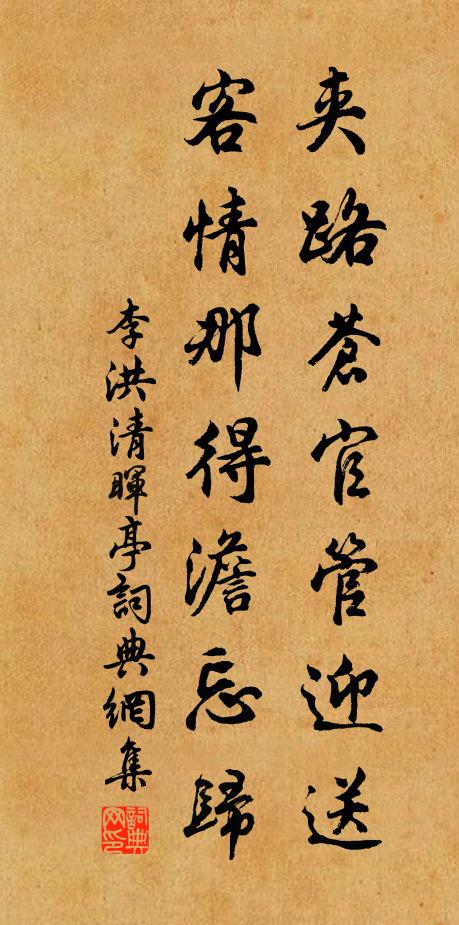 夹路蒼官管迎送
客情那得澹忘歸
李洪清暉亭詞典網集
詞典网印